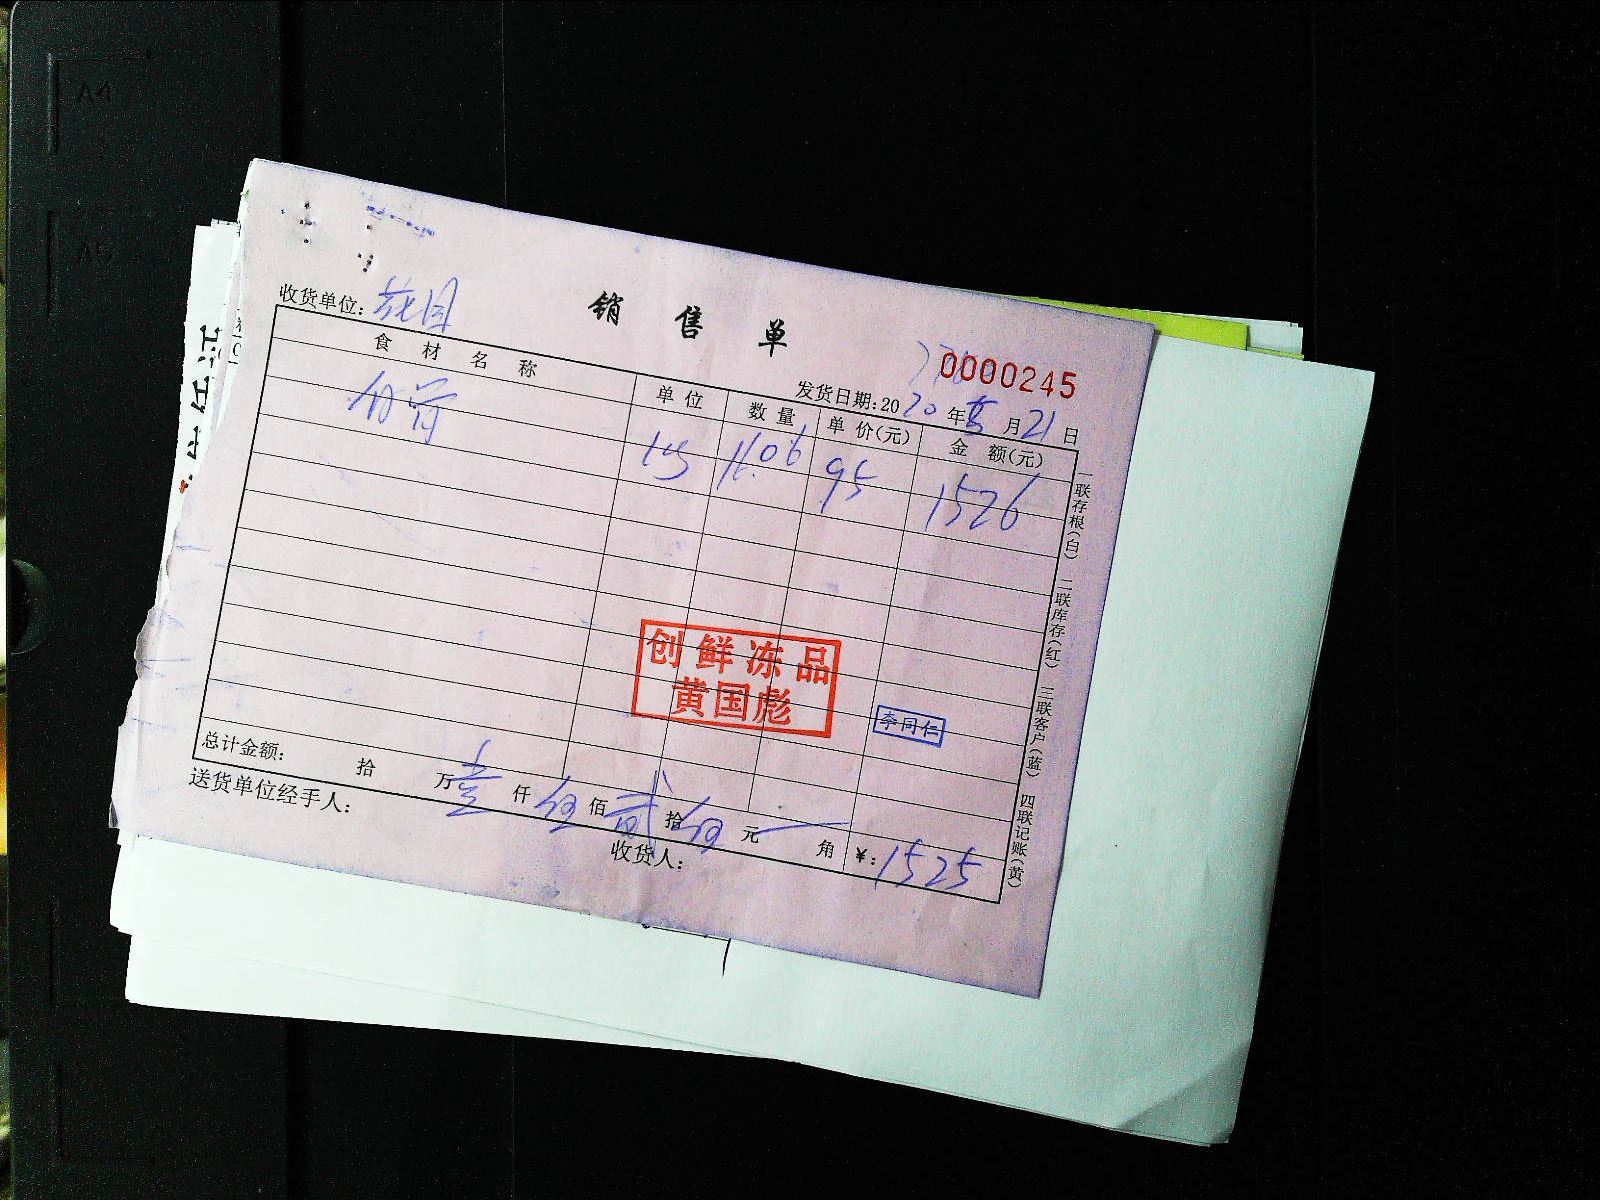 A4
A5
销售单
收货单位：花园
0000245
发货日期：2020年 月21日
食材名称 单位 数量 单价(元) 金额(元)
95 1526
创鲜冻品
黄国彪
李同仁
总计金额： 拾 万壹仟伍佰贰拾伍元 角 ¥：1525
送货单位经手人： 收货人：
一联存根(白) 二联库存(红) 三联客户(蓝) 四联记账(黄)